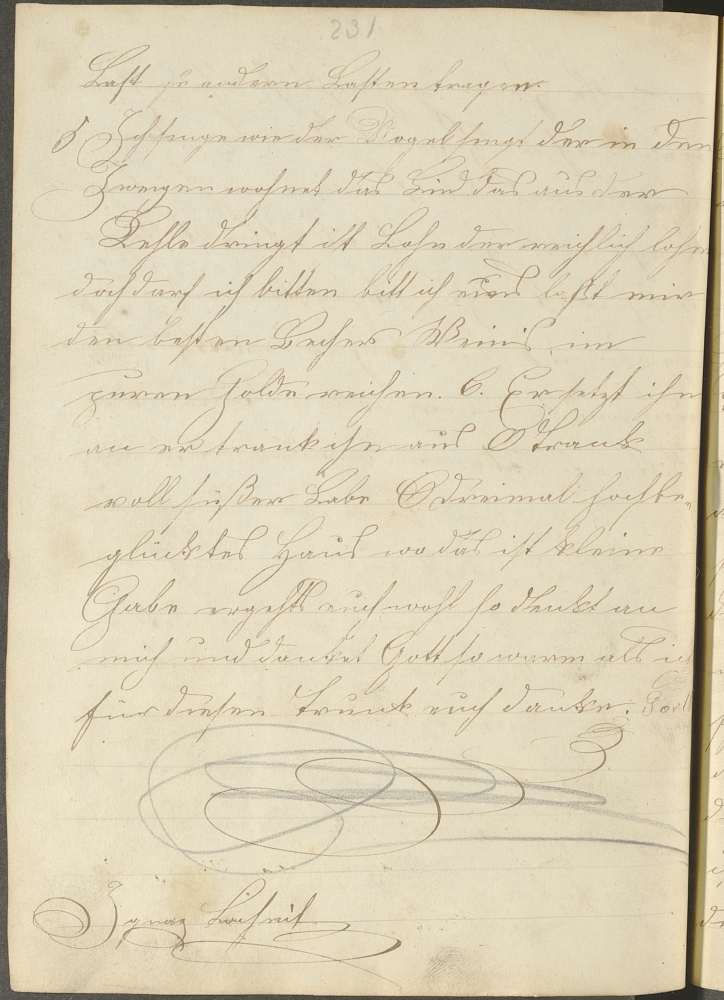 231
Last zu andern Lasten tragen.
5 Ich singe wie der Vogel singt der in den
Zweigen wohnet das Lied das aus der
Kehle dringt ist Lohn der reichlich lohn
doch darf ich bitten bitt ich eins laßt mir
den besten Becher Weins im
puren Golde reichen. 6. Er setzt ihn
an er trank ihn aus O Trank
voll süßer Labe O dreimal hochbe-
glücktes Haus wo das ist kleine
Gabe ergehts euch wohl so denkt an
mich und danket Gott so warm als ich
für diesen Trunk euch danke.
Ignaz